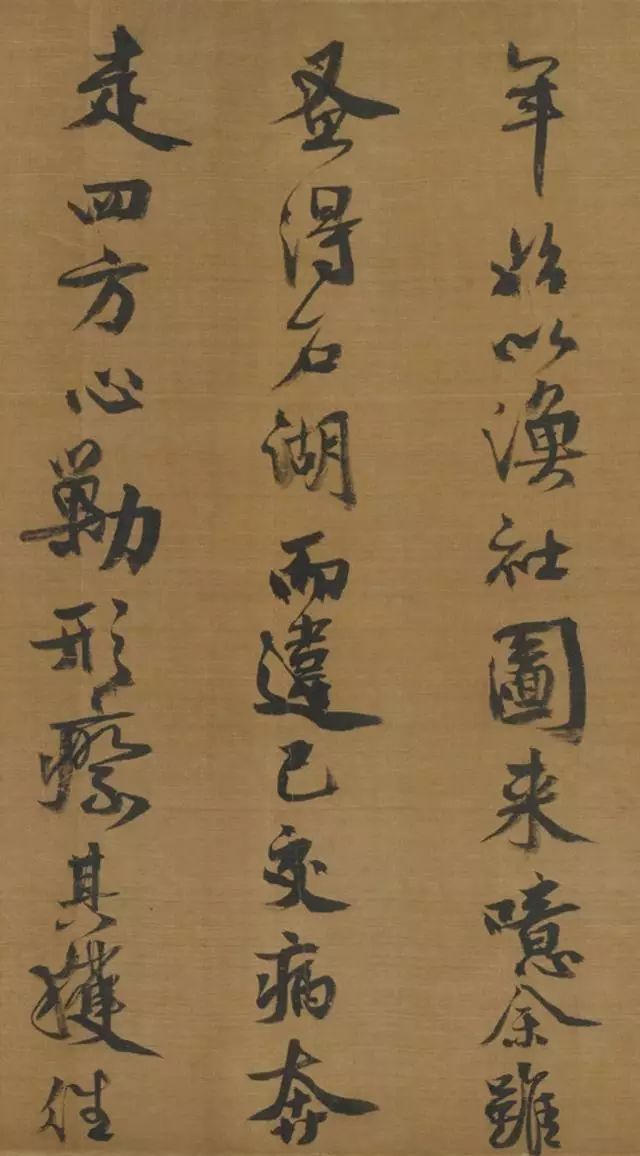 年始以漁社圖来噫余雖
蚤得石湖而違己交病奔
走四方心勦形瘵其獲徃